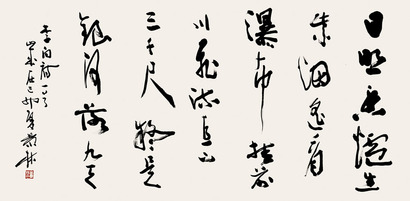 日照香炉生
紫烟遥看
瀑布挂前
川飞流直下
三千尺疑是
银河落九天
李白诗一首